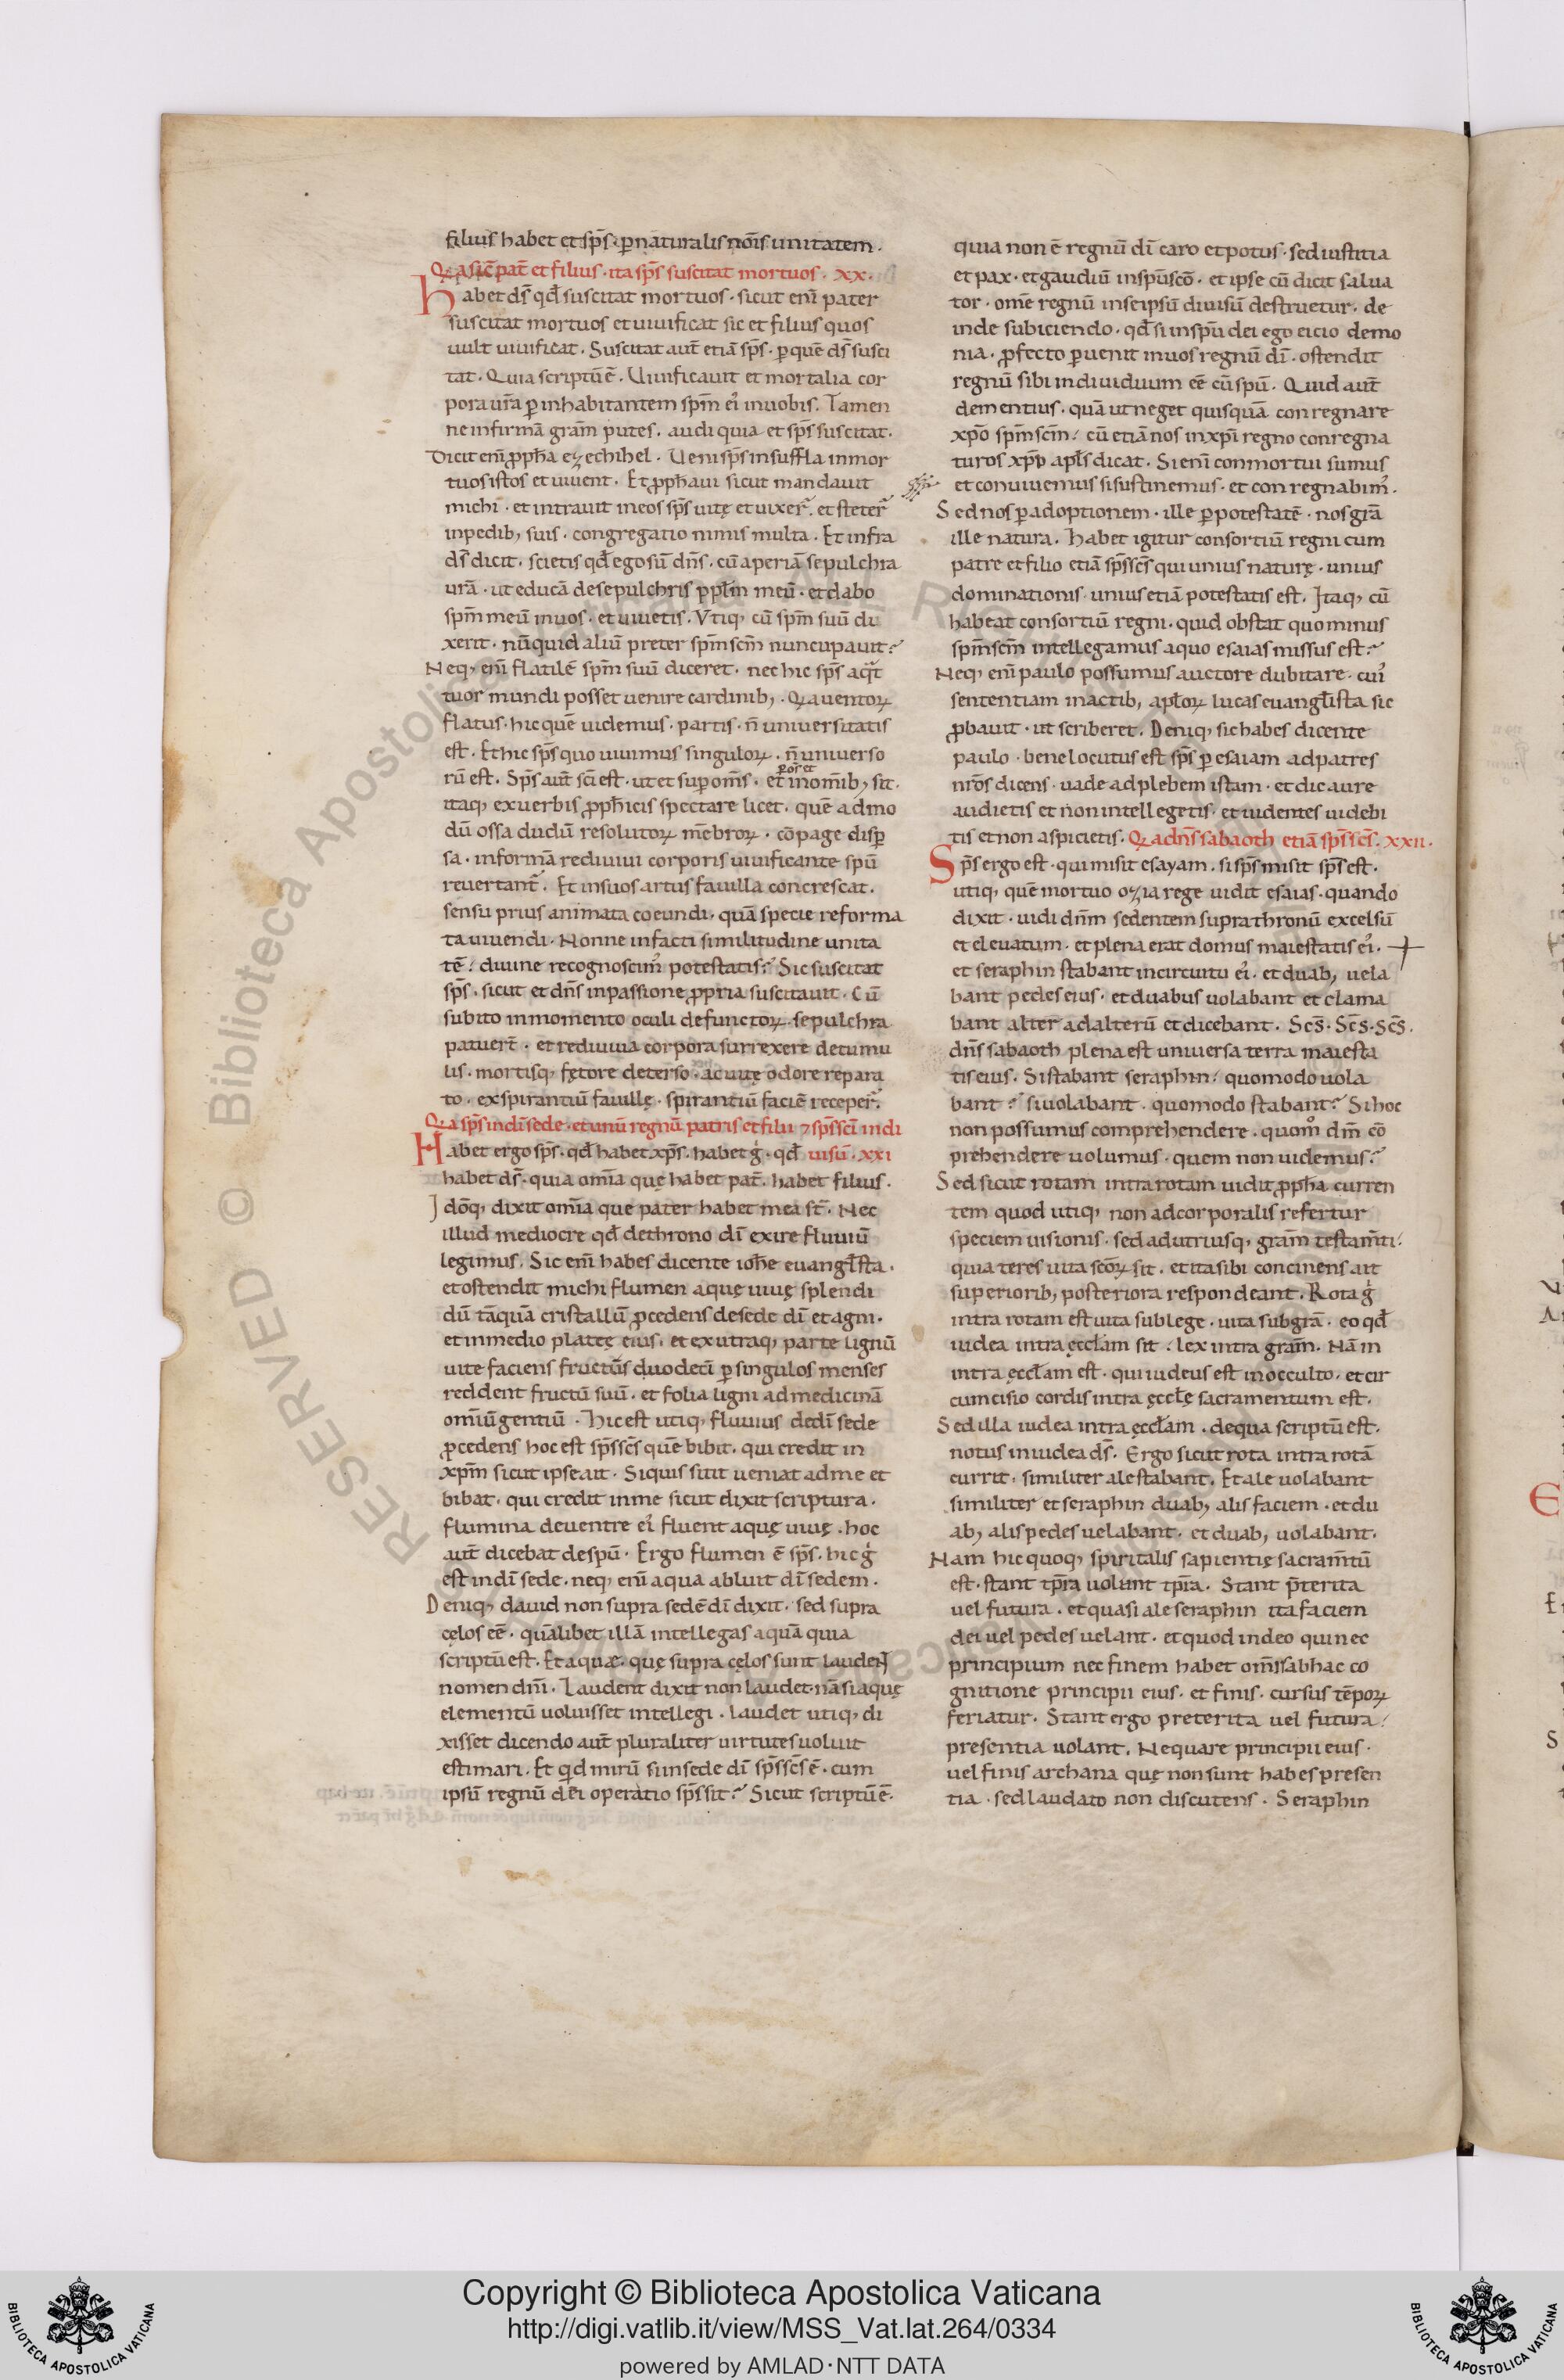 filius habet et sp̄s· ꝑ naturalis nōis unitatem.
Q͛a sic̄ pat̄ et filius· ita sp̄s suscitat mortuos· XX·
Habet ds̄ qđ suscitat mortuos· sicut eni̅ pater
suscitat mortuos et uiuificat sic et filius quos
uult uiuificat. Suscitat aut̄ etiā sp̄s· ꝑ quē ds̄ susci
tat. Quia scriptū ē. Uiuificauit et mortalia cor
pora ur̄a ꝑ inhabitantem spm̄ ei᾿ in uobis. Tamen
ne infirmā gram̄ putes. audi quia et sp̄s suscitat.
Dicit eni̅ ꝓpħa ezechihel. Ueni sp̄s insuffla in mor
tuos istos et uiuent. Et ꝓpħaui sicut mandauit
michi· et intrauit in eos sp̄s uitę et uixer̄. et steter̄
in pedib; suis· congregatio nimis multa. Et infra
ds̄ dicit. scietis qđ ego sū dn̄s· cū aperiā sepulchra
urā· ut educā de sepulchris ppl̄m meū· et dabo
spm̄ meū in uos· et uiuetis. Vtiq; cū spm̄ suū di
xerit· nūquid aliū preter spm̄ scm̄ nuncupauit?
Neq; eni̅ flatilē spm̄ suū diceret· nec hic sp̄s a q̄t
tuor mundi posset uenire cardinib;. Q͛a uentoꝝ
flatus· hic quē uidemus· partis· n̄ uniuersitatis
est. Et hic sp̄s quo uiuimus singuloꝝ· n̄ uniuerso
rū est. Sp̄s aut̄ sc̄i est· ut et suꝑ om̄s· et ꝑ os et in om̄ib; sit.
itaq; ex uerbis ꝓpħicis spectare licet· quē admo
dū ossa dudū resolutoꝝ mēbroꝝ· cōpage disꝑ
sa· in formā rediuiui corporis uiuificante spū
reuertant᷑. Et in suos artus fauilla concrescat.
sensu prius animata coeundi· quā specie reforma
ta uiuendi· Nonne in facti similitudine unita
tē diuine recognoscim᾿ potestatis? Sic suscitat
sp̄s· sicut et dn̄s in passione ꝓpria suscitauit· Cū
subito in momento oculi defunctoꝝ· sepulchra
patuert̄· et rediuiua corpora surrexere de tumu
lis· mortisq; fętore deterso· ac uitę odore repara
to· exspirantiū fauillę· spirantiū faciē receper̄.
Q͛a sp̄s in dī sede· et unū regnū patris et filii ⁊ sp̄s sc̄i indi
Habet ergo sp̄s· qđ habet xp̄s· habet g͛· qđ uisū· XXI
habet ds̄· quia om̄ia quę habet pat̄· habet filius·
Idōq; dixit om̄ia que pater habet mea st̄· Nec
illud mediocre qđ de throno dī exire fluuiū
legimus. Sic eni̅ habes dicente ioħe euangl̄sta·
et ostendit michi flumen aquę uiuę splendi
dū tāquā cristallū ꝓcedens de sede dī et agni·
et in medio plateę eius· et ex utraq; parte lignū
uite faciens fructūs duodeci̅ ꝑ singulos menses
reddent fructū suū· et folia ligni ad medicinā
om̄iū gentiū· Hic est utiq; fluuius de dī sede
ꝓcedens hoc est sp̄s sc̄s quē bibit· qui credit in
xpm̄ sicut ipse ait· Siquis sitit ueniat ad me et
bibat· qui credit in me sicut dixit scriptura·
flumina de uentre ei᾿ fluent aquę uiuę· hoc
aut̄ dicebat de spū· Ergo flumen ē sp̄s· hic g͛
est in dī sede· neq; eni̅ aqua abluit dī sedem·
Deniq; dauid non supra sedē dī dixit· sed supra
cęlos eē· quālibet illā intellegas aquā quia
scriptū est. Et aquæ· quę supra cęlos sunt laudent
nomen dm̄i· Laudent dixit non laudet· nā si aquę
elementū uoluisset intellegi· laudet utiq; di
xisset dicendo aut̄ pluraliter uirtutes uoluit
estimari. Et qid mirū si in sede dī sp̄s sc̄s ē· cum
ipsū regnū dei operatio sp̄s sit? Sicut scriptū ē·
quia non ē regnū dī caro et potus· sed iustitia
et pax· et gaudiū in spū scō· et ipse cū dicit salua
tor· om̄e regnū in seipsū diuisū destruetur· de
inde subiciendo· qđ si in spū dei ego eicio demo
nia· ꝓfecto ꝑuenit in uos regnū dī· ostendit
regnū sibi indiuiduum eē cū spū· Quid aut̄
dementius· quā ut neget quisquā conregnare
xpō spm̄ scm̄· cū etiā nos in xpi̅ regno conregna
turos xpō apl̄s dicat· Si eni̅ conmortui sumus
et conuiuemus si sustinemus· et conregnabim᾿·
Sed nos ꝑ adoptionem· ille ꝑ potestatē· nos grā
ille natura. Habet igitur consortiū regni cum
patre et filio etiā sp̄s sc̄s qui unius naturę· unius
dominationis· unius etiā potestatis est. Itaq; cū
habeat consortiū regni· quid obstat quo minus
spm̄ scm̄ intellegamus a quo esaias missus est?
Neq; eni̅ paulo possumus auctore dubitare· cui᾿
sententiam in actib; apl̄oꝝ lucas euangl̄ista sic
ꝓbauit· ut scriberet. Deniq; sic habes dicente
paulo· bene locutus est sp̄s ꝑ esaiam ad patres
nr̄os dicens· uade ad plebem istam· et dic aure
audietis et non intellegetis· et uidentes uidebi
tis et non aspicietis· Q͛a dn̄s sabaoth etiā sp̄s sc̄s· XXII·
Sp̄s ergo est· qui misit esayam· si sp̄s misit sp̄s est·
utiq; quē mortuo ozia rege uidit esaias· quando
dixit· uidi dn̄m sedentem supra thronū excelsū
et eleuatum· et plena erat domus maiestatis ei᾿·
et seraphin stabant in circuitu ei᾿· et duab; uela
bant pedes eius· et duabus uolabant et clama
bant alter ad alterū et dicebant· Sc̄s· Sc̄s· Sc̄s·
dn̄s sabaoth plena est uniuersa terra maiesta
tis eius· Si stabant seraphin· quomodo uola
bant? si uolabant· quomodo stabant? Si hoc
non possumus comprehendere· quom͛ dm̄ cō
prehendere uolumus· quem non uidemus?
Sed sicut rotam intra rotam uidit ꝓpħa curren
tem quod utiq; non ad corporalis refertur
speciem uisionis· sed ad utriusq; gram̄ testam̄ti·
quia teres uita scōꝝ sit· et ita sibi concinens ait
superiorib; posteriora respondeant. Rota g͛
intra rotam est uita sub lege· uita sub grā· eo qđ
iudea intra ęccl̄am sit· lex intra gram̄· Nā in
intra ęccl̄am est· qui iudeus est in occulto· et cir
cumcisio cordis intra ęccl̄ę sacramentum est·
Sed illa iudea intra ęccl̄am· de qua scriptū est·
notus in iudea ds̄· Ergo sicut rota intra rotā
currit· similiter ale stabant· Et ale uolabant
similiter et seraphin duab; alis faciem· et du
ab; alis pedes uelabant· et duab; uolabant·
Nam hic quoq; spiritalis sapientię sacram̄tū
est· stant tp̄ra uolunt tp̄ra· Stant p̄terita
uel futura· et quasi ale seraphin ita faciem
dei uel pedes uelant· et quod in deo qui nec
principium nec finem habet om̄is ab hac co
gnitione principii eius· et finis· cursus tēpoꝝ
feriatur· Stant ergo preterita uel futura·
presentia uolant. Ne quare principii eius·
uel finis archana quę non sunt habes presen
tia· sed laudato non discutens· Seraphin
Copyright © Biblioteca Apostolica Vaticana
http://digi.vatlib.it/view/MSS_Vat.lat.264/0334
powered by AMLAD·NTT DATA